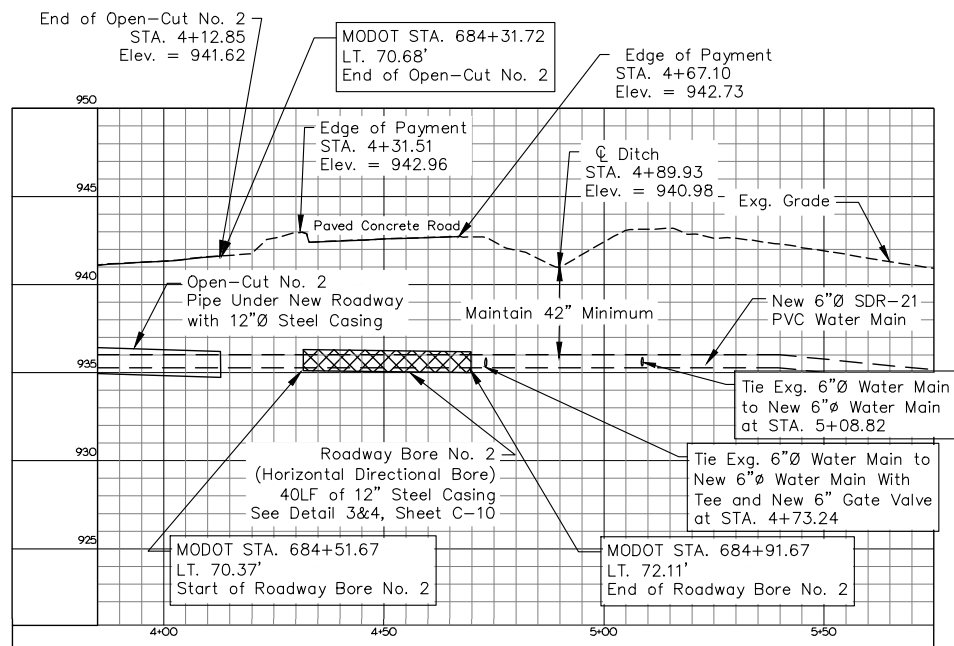 End of Open-Cut No. 2
STA. 4+12.85
Elev. = 941.62
MODOT STA. 684+31.72
LT. 70.68'
End of Open-Cut No. 2
Edge of Payment
STA. 4+67.10
Elev. = 942.73
950
Edge of Payment
STA. 4+31.51
Elev. = 942.96
℄ Ditch
STA. 4+89.93
Elev. = 940.98
945
Exg. Grade
Paved Concrete Road
940
Open-Cut No. 2
Pipe Under New Roadway
with 12"Ø Steel Casing
Maintain 42" Minimum
New 6"Ø SDR-21
PVC Water Main
935
Tie Exg. 6"Ø Water Main
to New 6"ø Water Main
at STA. 5+08.82
930
Roadway Bore No. 2
(Horizontal Directional Bore)
40LF of 12" Steel Casing
See Detail 3&4, Sheet C-10
Tie Exg. 6"Ø Water Main to
New 6"ø Water Main With
Tee and New 6" Gate Valve
at STA. 4+73.24
925
MODOT STA. 684+51.67
LT. 70.37'
Start of Roadway Bore No. 2
MODOT STA. 684+91.67
LT. 72.11'
End of Roadway Bore No. 2
4+00
4+50
5+00
5+50